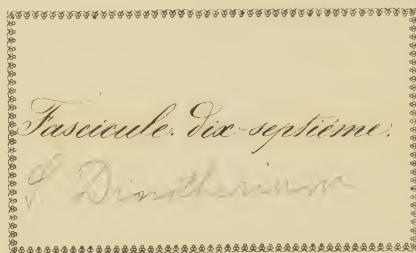 Fascicule dix-septième.
Dinotherium